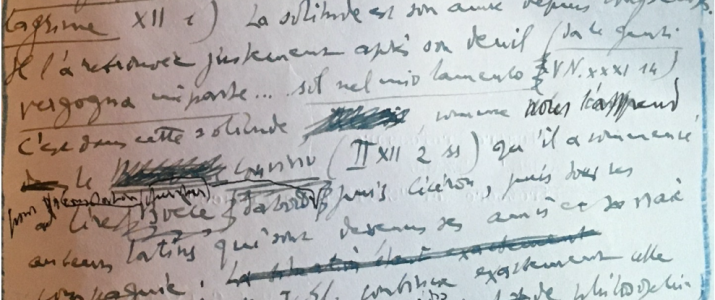 lagrime XII 1) La solitude est son amie depuis longtemps.
Il l'a retrouvée justement après son deuil (da le genti
vergogna mi parte... sol nel mio lamento VN. XXXI 14)
C'est dans cette solitude comme nous l'apprend
le Convivio (II XII 2 ss) qu'il a commencé
à lire Boèce d'abord, puis Cicéron, puis tous les
auteurs latins qui sont devenus ses amis et sa vraie
compagnie. La situation était exactement
continue exactement celle
philosophie